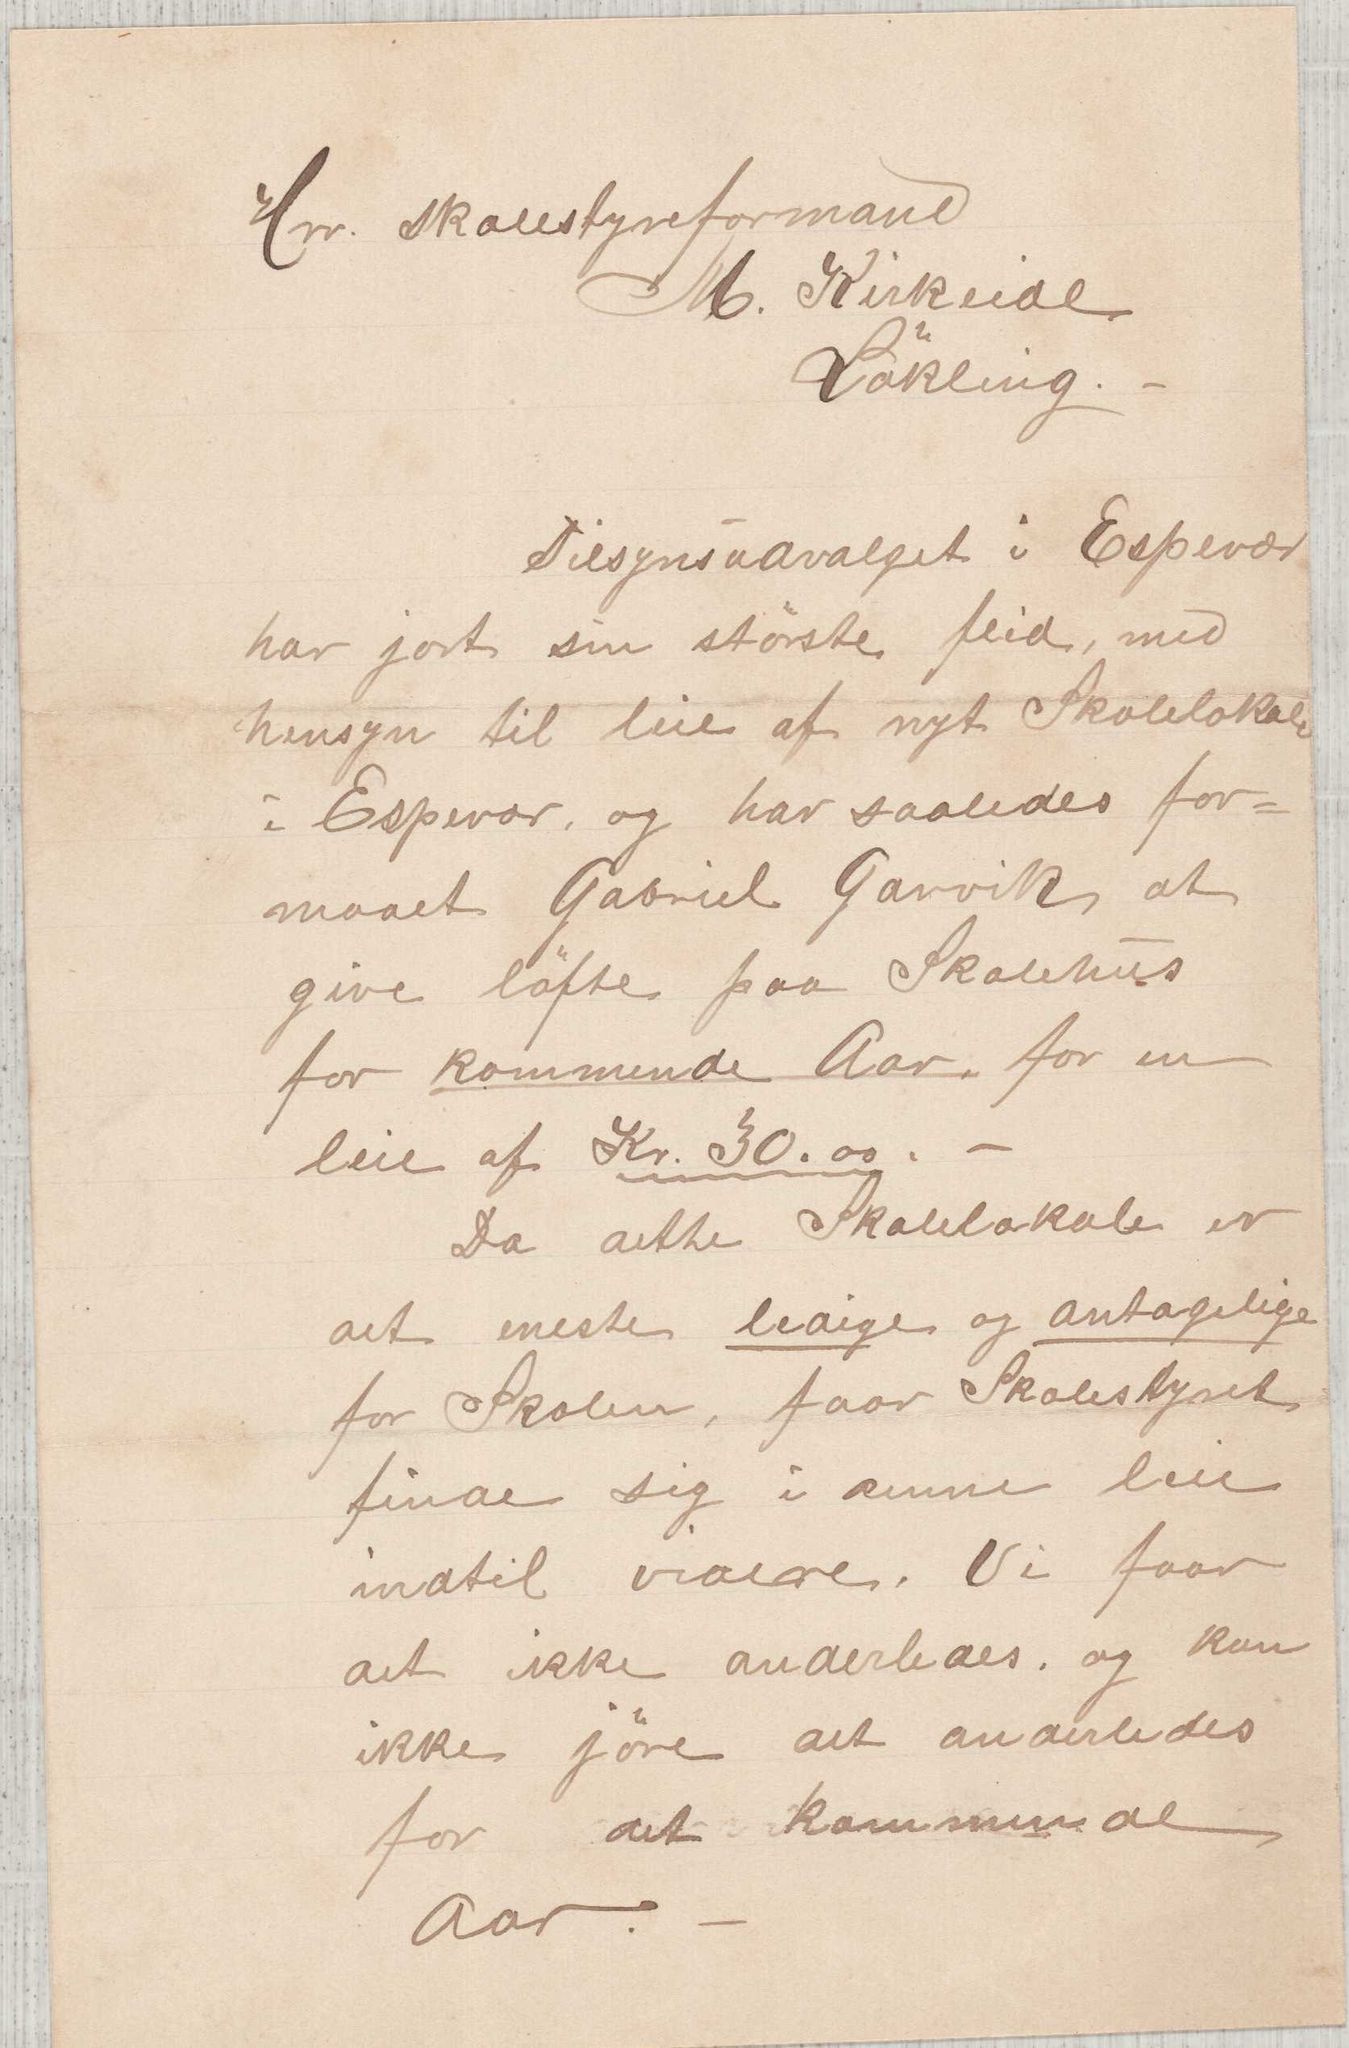 Hrr. skolestyreformand
M. Kirkeide
Lökling. –
Tilsynsudvalget i Espevær
har jort sin störste fleid, med
hensyn til leie af nyt Skolelokale
i Espevær, og har saaledes for=
maaet Gabriel Garvik, at
give löfte paa Skolehus
for kommende Aar, for en
leie af Kr. 30.00. –
Da dette Skolelokale er
det eneste ledige og antagelige
for Skolen, faar Skolestyret
finde sig i denne leie
indtil videre. Vi faar
det ikke anderledes. og kan
ikke jöre det anderledes
for det kommende
Aar. –